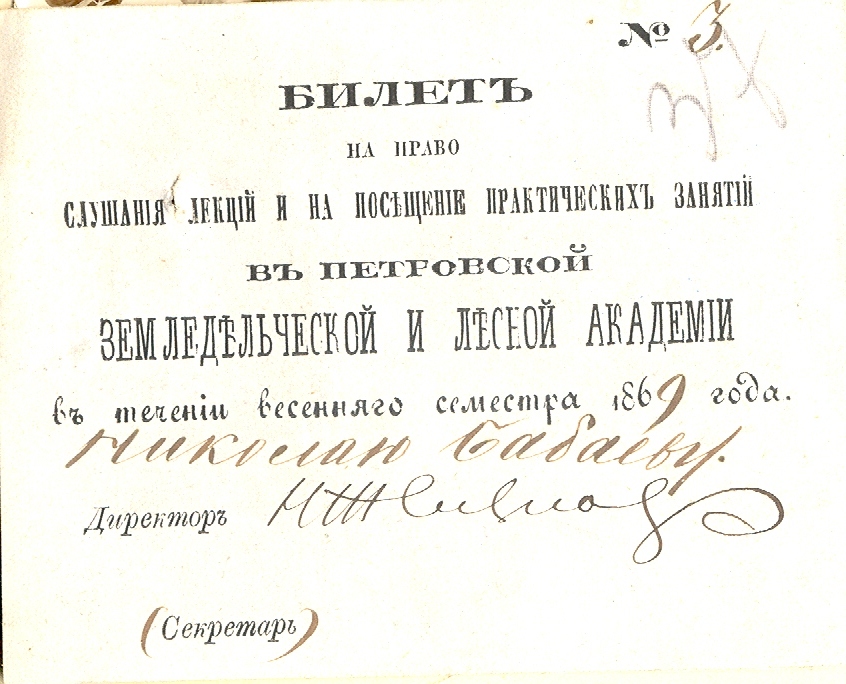 № 3.
БИЛЕТЪ
НА ПРАВО
СЛУШАНІЯ ЛЕКЦІЙ И НА ПОСѢЩЕНІЕ ПРАКТИЧЕСКИХЪ ЗАНЯТІЙ
ВЪ ПЕТРОВСКОЙ
ЗЕМЛЕДѢЛЬЧЕСКОЙ И ЛѢСНОЙ АКАДЕМІИ
въ теченіи весенняго семестра 1869 года.
Николаю Бабаеву.
Директоръ
(Секретарь)